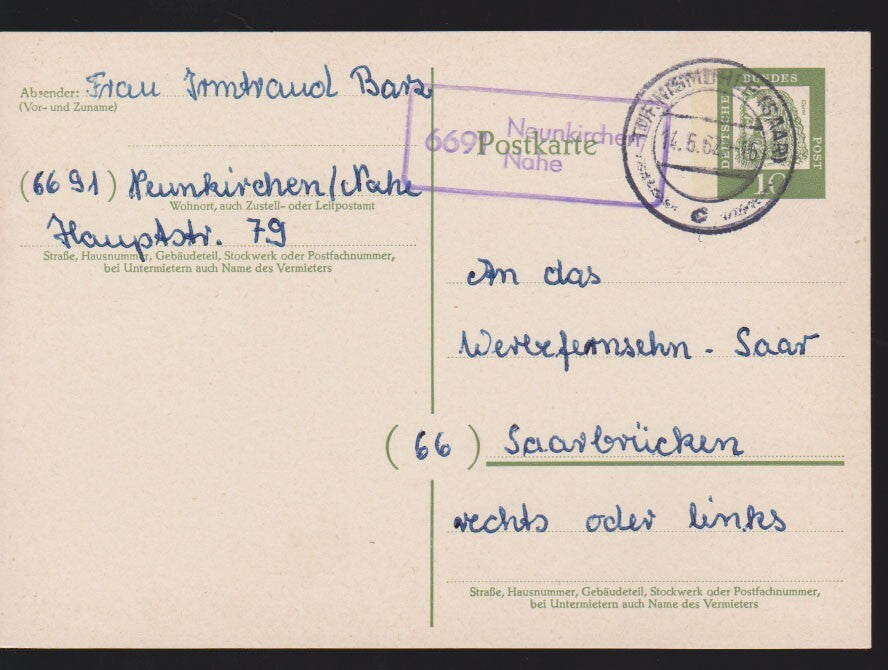 Absender: Frau Irmtraud Barz
(Vor- und Zuname)
(6691) Neunkirchen/Nahe
Wohnort, auch Zustell- oder Leitpostamt
Hauptstr. 79
Straße, Hausnummer, Gebäudeteil, Stockwerk oder Postfachnummer,
bei Untermietern auch Name des Vermieters
6691 Neunkirchen
Nahe
Postkarte
(SAAR)
14.6.62
c
DEUTSCHE
BUNDES
POST
10
An das
Werbefernsehn - Saar
(66) Saarbrücken
rechts oder links
Straße, Hausnummer, Gebäudeteil, Stockwerk oder Postfachnummer,
bei Untermietern auch Name des Vermieters